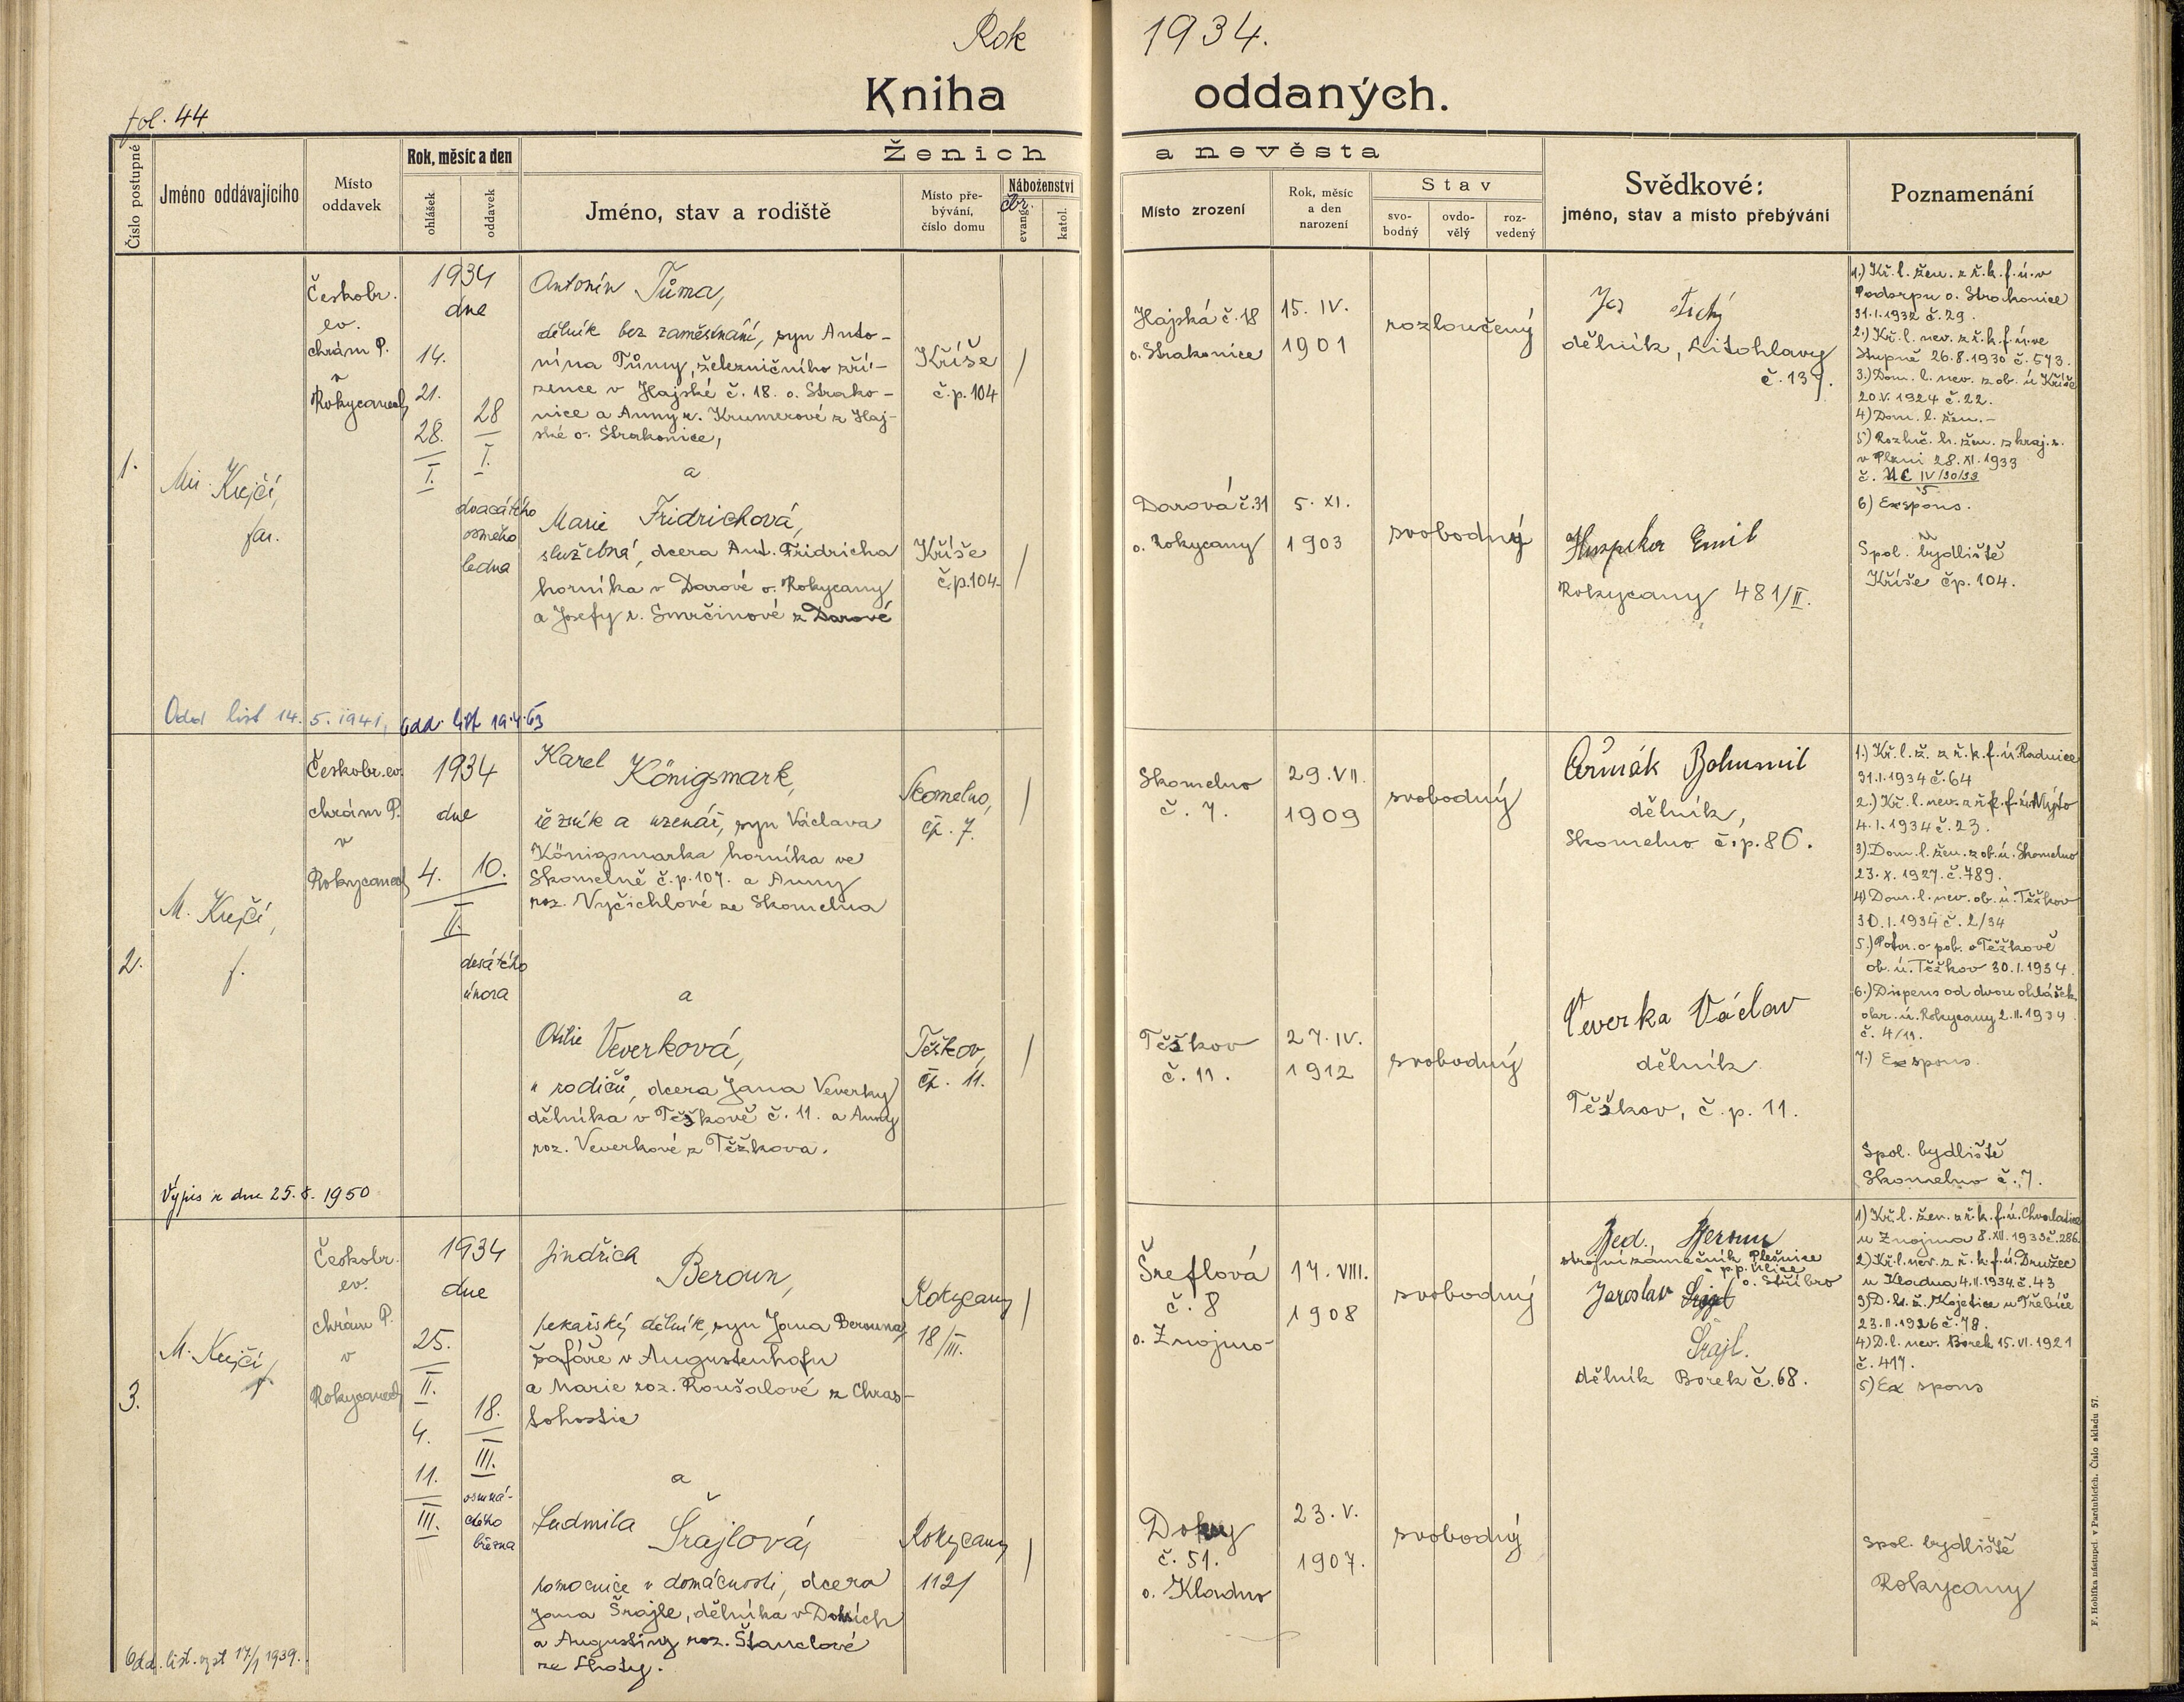 Rok 1934.
Kniha oddaných.
fol. 44
Číslo postupné
Jméno oddávajícího
Místo
oddavek
Rok, měsíc a den
ohlášek
oddavek
Ženich a nevěsta
Jméno, stav a rodiště
Místo pře-
bývání,
číslo domu
Náboženství
čbr.
evang.
katol.
Místo zrození
Rok, měsíc
a den
narození
Stav
svo-
bodný
ovdo-
vělý
roz-
vedený
Svědkové:
jméno, stav a místo přebývání
Poznamenání
1.
Mir. Krejčí,
far.
Českobr.
ev.
chrám P.
v
Rokycanech
1934
dne
14.
21.
28.
I.
28
I.
dvacátého
osmého
ledna
Antonín Tůma,
dělník bez zaměstnání, syn Anto-
nína Tůmy, železničního zří-
zence v Hajské č. 18. o. Strako-
nice a Anny r. Krumerové z Haj-
ské o. Strakonice,
a
Marie Fridrichová,
služebná, dcera Ant. Fridricha
horníka v Darové o. Rokycany
a Josefy r. Smrčinové z Darové
Kříše
č.p. 104
Kříše
č.p. 104
Hajská č. 18
o. Strakonice
15. IV.
1901
rozloučený
Darová č. 31
o. Rokycany
5. XI.
1903
svobodný
Jos Tichý
dělník, Litohlavy
č. 137.
Emil
Rokycany 481/II.
1.) Kř. l. žen. z ř. k. f. ú. v
Podsrpu o. Strakonice
31.1.1932 č. 29.
2.) Kř. l. nev. z ř. k. f. ú. ve
Stupně 26.8.1930 č. 573.
3.) Dom. l. nev. z ob. ú Kříše
20.V. 1924 č. 22.
4) Dom. l. žen. -
5) Rozluč. lr. žen. z kraj. s.
v Plzni 28. XI. 1933
č. Nc IV/30/33
5
6) Exspons.
Spol. bydliště
Kříše čp. 104.
Odd list 14. 5. 1941, odd. list 19.4.63
2.
M. Krejčí,
f.
Českobr. ev.
chrám P.
v
Rokycanech
1934
dne
4.
10.
II.
desátého
února
Karel Königsmark,
řezník a uzenář, syn Václava
Königsmarka horníka ve
Skomelně č.p. 107. a Anny
roz. Vyčichlové ze Skomelna
a
Otilie Veverková,
u rodičů, dcera Jana Veverky
dělníka v Těškově č. 11. a Anny
roz. Veverkové z Těžkova.
Skomelno,
čp. 7.
Těškov,
čp. 11.
Skomelno
č. 7.
29. VII.
1909
svobodný
Těškov
č. 11.
27. IV.
1912
svobodný
Čermák Bohumil
dělník,
Skomelno č.p. 86.
Veverka Václav
dělník
Těškov, č.p. 11.
1.) Kř. l. ž. z ř. k. f. ú. Radnice
31.1.1934 č. 64
2.) Kř. l. nev. z ř. k. f. ú. Mýto
4.1.1934 č. 23.
3) Dom. l. žen. z ob. ú. Skomelno
23. X. 1927. č. 789.
4) Dom. l. nev. ob. ú. Těžkov
30.1.1934 č. 2/34
5.) Potvr. o pob. v Těžkově
ob. ú. Těžkov 30.1.1934.
6.) Dispens od dvou ohlášek
okr. ú. Rokycany 2.II.1934.
č. 4/11.
7.) Exspons.
Spol. bydliště
Skomelno č. 7.
Výpis z dne 25. 8. 1950
3.
M. Krejčí
f.
Českobr.
ev.
chrám P.
v
Rokycanech
1934
dne
25.
II.
4.
11.
III.
18.
III.
osmná-
ctého
března
Jindřich
Beroun,
pekařský dělník, syn Jana Berouna
šafáře v Augustenhofu
a Marie roz. Roušalové z Chras-
tohostic
a
Ludmila
Šrajlová,
pomocnice v domácnosti, dcera
Jana Šrajle, dělníka v Dokách
a Augustiny roz. Štanclové
ze Lhoty.
Rokycany
18/III.
Rokycany
112/
Šreflová
č. 8
o. Znojmo
17. VIII.
1908
svobodný
Doky
č. 51.
o. Kladno
23. V.
1907.
svobodný
Bed. Beroun
strojní zámečník Plešnice
p.p. Úlice
o. Stříbro
Jaroslav
Šrajl.
dělník Borek č. 68.
1) Kř. l. žen. z ř. k. f. ú. Chvalatice
u Znojma 8. XII. 1933 č. 286.
2) Kř. l. nev. z ř. k. f. ú. Družec
u Kladna 4.II.1934. č. 43
3) D. l. ž. Kojetice u Třebíče
23.II.1926 č. 78.
4) D. l. nev. Borek 15. VI. 1921
č. 417.
5) Ex spons
Spol. bydliště
Rokycany
Odd. list. vyst 17/1 1939.
F. Hoblíka nástupci v Pardubicích. Číslo skladu 57.